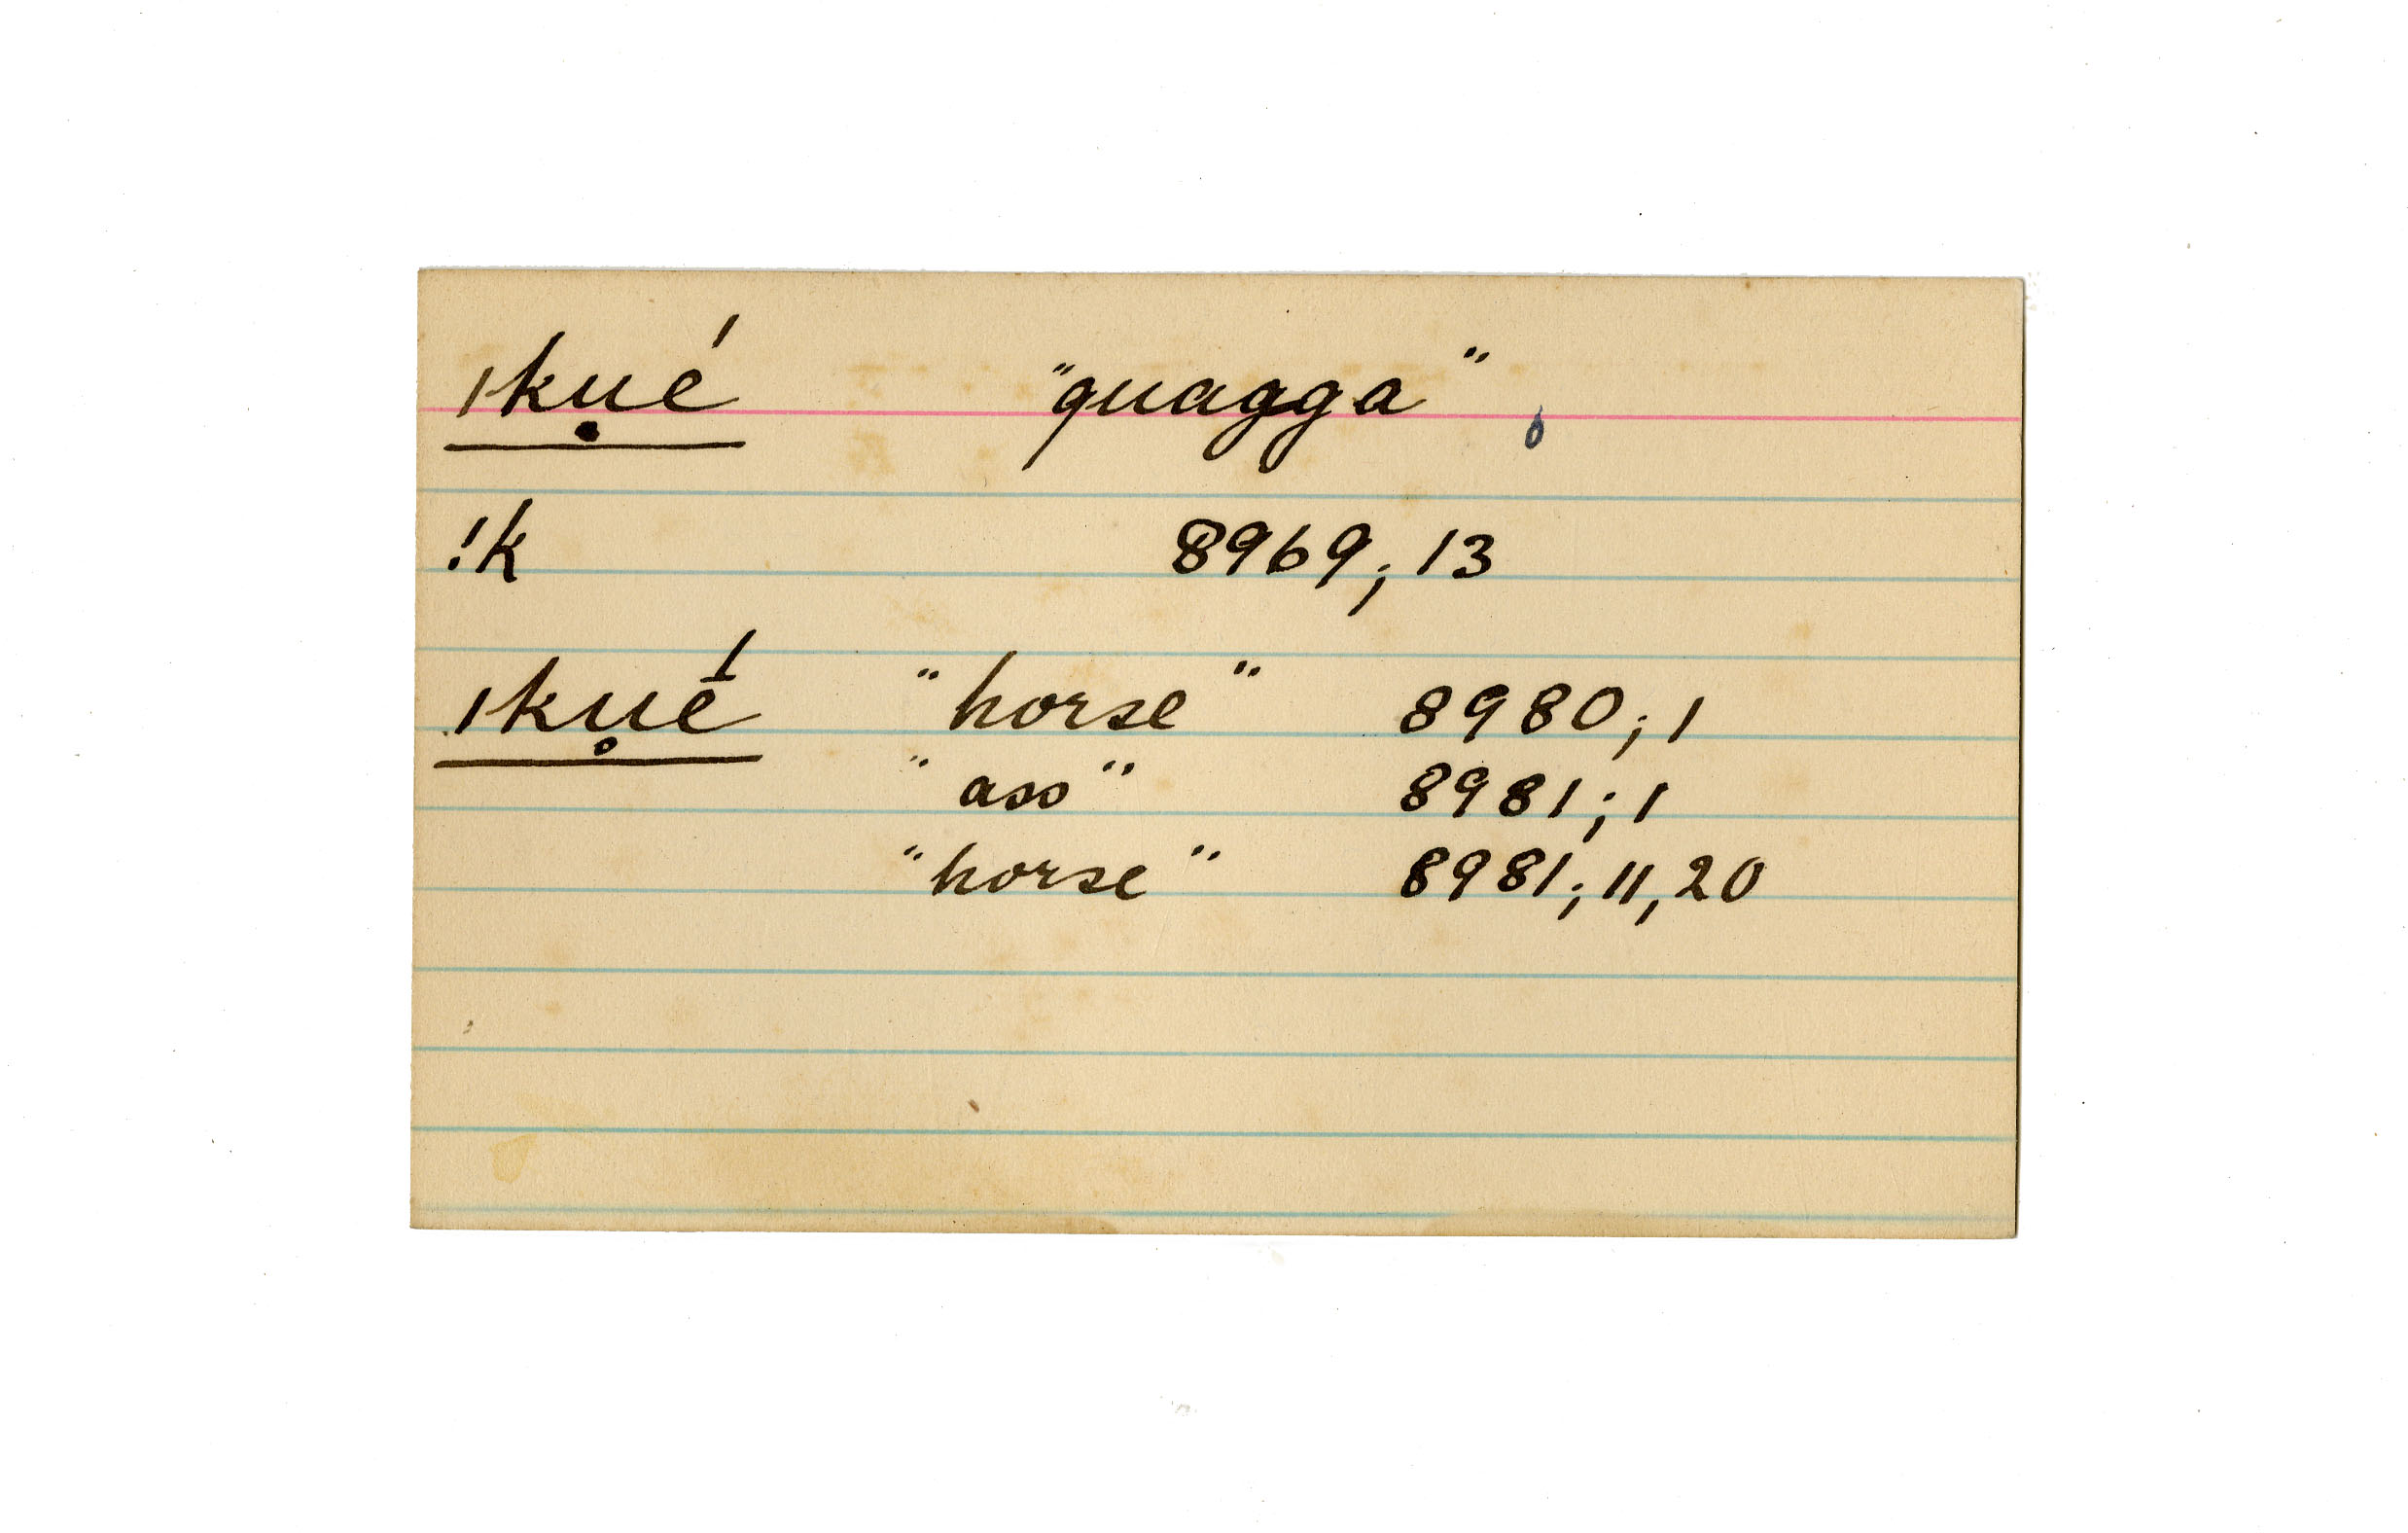 ǀkụé "quagga"
!k 8969; 13
ǀkụ̊é̄ "horse" 8980; 1
"ass" 8981; 1
"horse" 8981; 11, 20